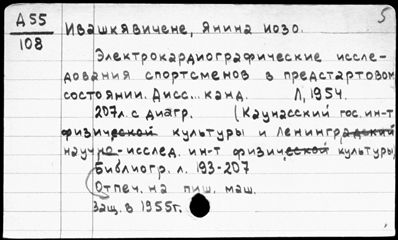 5
А55
108
Ивашкявичене, Янина Иозо.
Электрокардиографические иссле-
дования спортсменов в предстартовом
состоянии. Дисс... канд. Л, 1954.
207л. с диагр. (Каунасский гос. ин-т
физической культуры и Ленинградский
научно-исслед. ин-т физической культуры)
Библиогр. л. 193-207
Отпеч. на пиш. маш.
Защ. в 1955г.